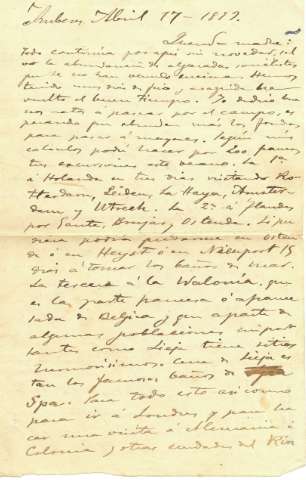 Amberes Abril 17-1889.
Querida madre:
Todo continúa por aquí sin novedad, sal
vo la abundancia de algaradas socialistas
que se nos van viendo encima. Hemos
tenido unos días de frío, y enseguida hemos
vuelto el buen tiempo. Yo dedico
ratos á pasear por el campo, es
perando que abunden más los fondos
para pasar á mayores. Según mis
calculos podré hacer por los
tes excursiones este verano. La 1ª
á Holanda en tres días visitando Ro-
tterdam, Leiden, La Haya, Amster-
dam y Utrech. La 2ª á Flandes
por Gante, Brujas y Ostende. Si pu
diera podría quedarme en Osten
de ó en Heyst ó en Nieuport 15
dias á tomar los baños de mar.
La tercera á la Walonia, que
es la parte francesa ó afrance
sada de Belgica, y que aparte de
algunas poblaciones impor
tantes como Lieja tiene sitios
hermosísimos. Cerca de Lieja es
tan los famosos baños de
Spa. Para todo esto así como
para ir á Londres y para ha
cer una visita á Alemania á
Colonia y otras ciudades del Rin